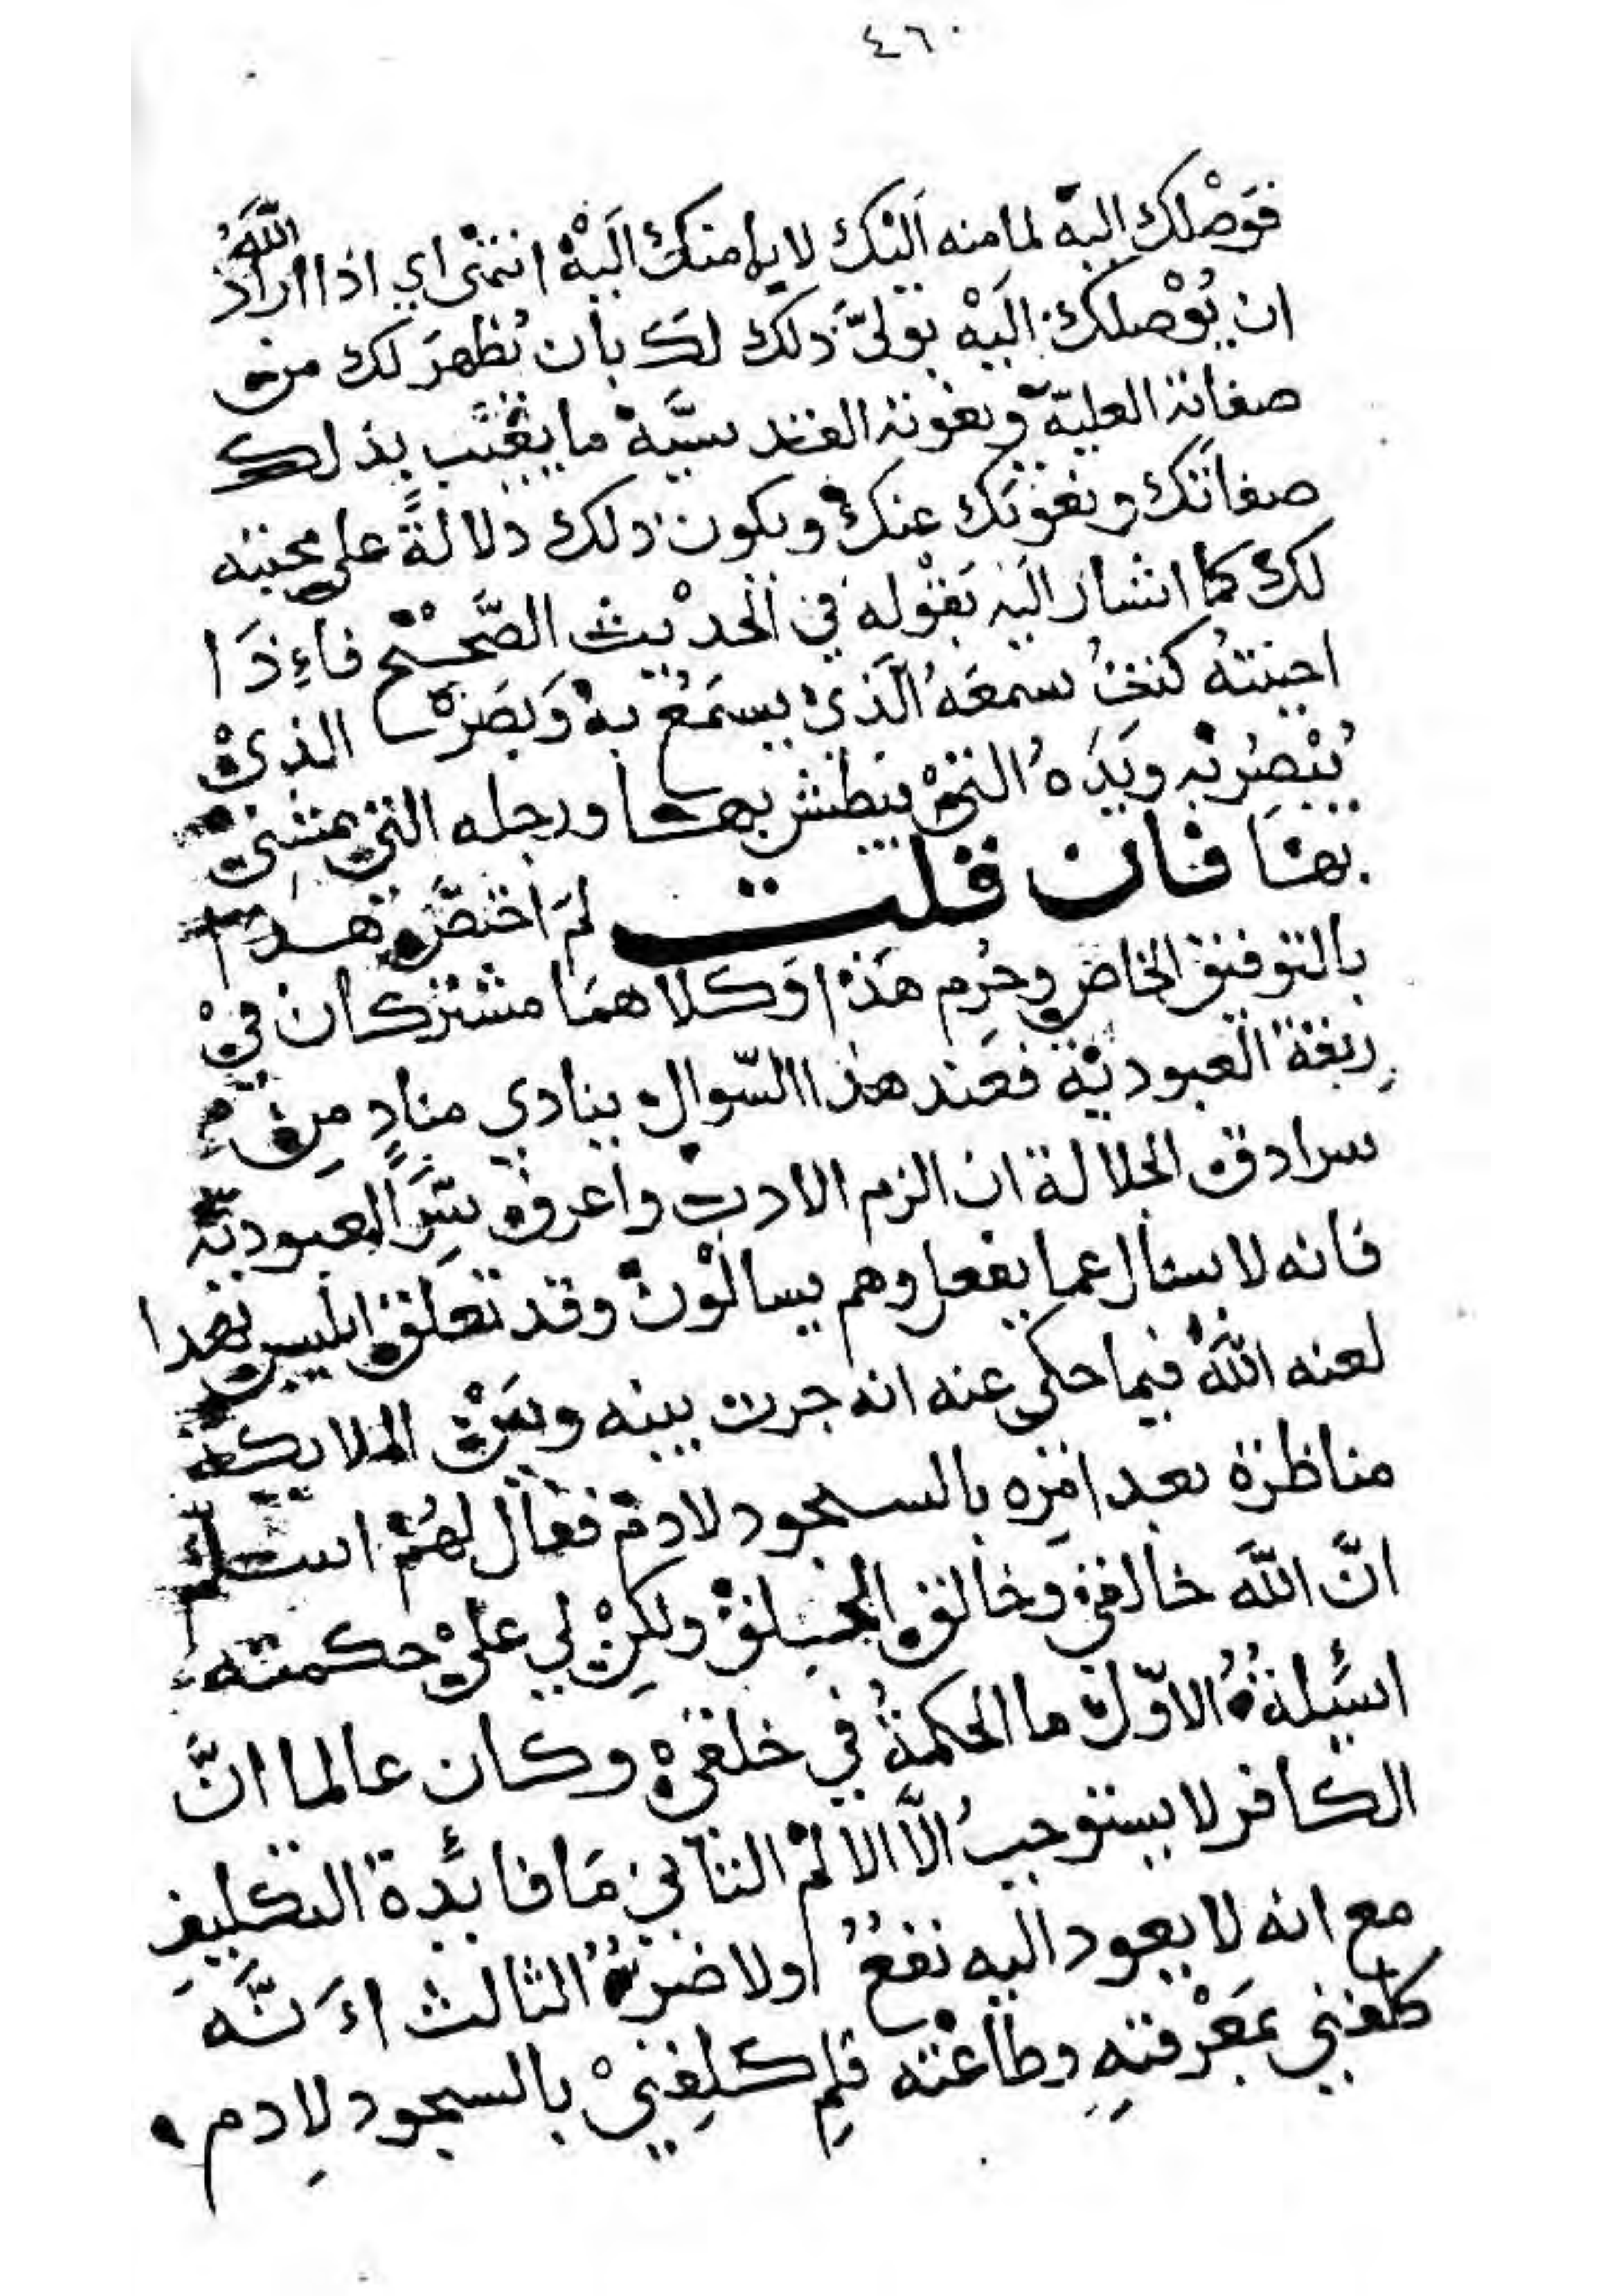 ٤٦٠
فَوَصْلك اليه لما منه اليك لا بما منك اليه انتهى اي اذا اراد اللهُ
ان يُوْصلك اليه تولّى ذلك لك بان يُظهرَ لك من
صفاته العلية ونعوته القدسيَّة ما يغيّب بذلك
صفاتك ونعوتك عنك ويكون ذلك دلالةً على محبته
لك كما اشار اليه بقوله في الحديث الصَّحيح فاءِذَا
احببتهُ كنتُ سمعَهُ الَّذي يسمَعُ به وَبَصَرَه الذي
يُبْصِرُ به ويَدَهُ التي يبطش بها ورجله التي يمشي
بها فان قلت لمَ اختصَّ هذا
بالتوفيق الخاص وحُرِم هَذا وَكلاهمَا مشتركان في
رِبقة العبودية فعند هذا السّوال ينادي منادٍ مِن
سرادق الجلالة ان الزم الادب واعرف سِرَّ العبوديّة
فانه لا يسال عما يفعل وهم يسالون وقد تعلق ابليس بهدا
لعنه اللهُ فيما حكى عنه انه جرت بينه وبين الملايكة
مناظرة بعد امرِه بالسجود لادم فقال لهُم اسلم
انَّ اللهَ خالقي وخالق الخلق ولكِن لي على حكمته
اسئِلةُ الاوّل ما الحكمةُ في خلقي وكان عالما انَّ
الكافر لا يستوجبُ الَّا الالم الثاني مَا فائدة التكليفِ
مع انه لا يعود اليه نفعُ اولا ضرُّ الثالث اءَنَّه
كلفني بمَعْرفتهِ وطاعته فلِم كلِفنيْ بالسجود لادم